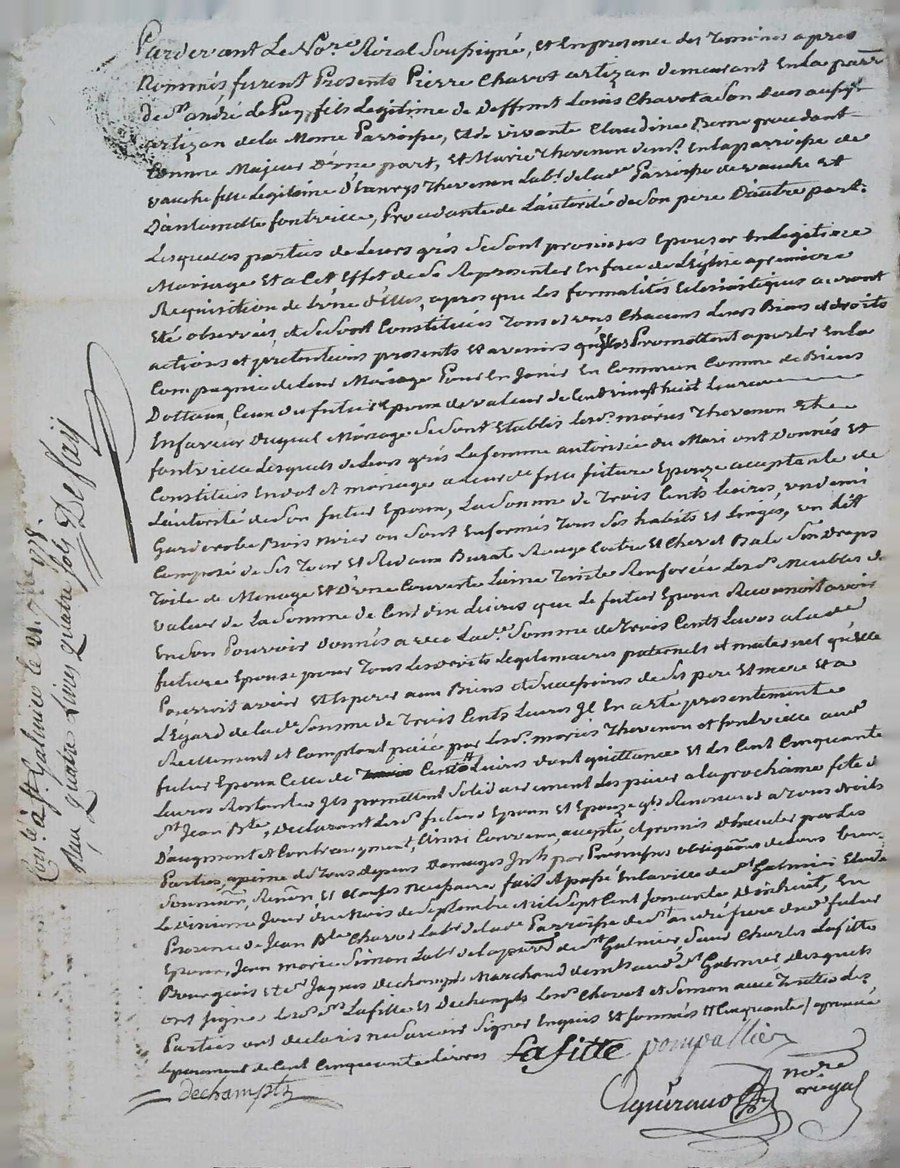 Pardevant Le No.re Roial Soussigné, et En presence des Temoins apres
Nommés furent Presents Pierre Chavot artizan demeurant En la parr.
de St. andré de Puy, fils Legitime de deffunt Louis Chavot a Son vivant
artizan de la Meme Parroisse, et de vivante Claudine Berne procedant
Comme Majeur D'une part, Et Marie Thevenon dem.t En la parroisse de
vauche fille Legitime d' Thevenon Lab.r de lad.e Parroisse de vauche et
D'antoinette fontvielle, Procedante de L'autorité de Son pere D'autre part.
Lesquelles parties de Leurs grés Se Sont promises Epouser En Legitime
Mariage Et a Cet Effet de Se Representer En face de L'Eglise a premiere
Requisition de L'une d'Elles, apres que Les formalités Eclesiastiques auront
Eté observées, et Se Sont Constitués Tous et uns Chacuns Leurs Biens et droits
actions et pretentions presents Et avenirs qu'ils Promettent aporter En la
Compagnie de Leur Mariage Pour En Jouir En Commun Comme de Biens
Dottaux, Ceux du futur Epoux de valeur de Cent vingt huit Livres
En faveur duquel Mariage Se Sont Etablis Lesd. mariés Thevenon Et
fontvielle Lesquels de Leurs grés La femme autorisée du Mari ont Donnés Et
Constitués En dot et mariage a Leurd.e fille future Epouze acceptante de
L'autorité de Son futur Epoux, La Somme de Trois Cents Livres, un demi
Garderobe Bois noier ou Sont Enfermés Tous Ses habits Et Linges, un Lit
Composé de Ses Tour Et Rideaux Burat Rouge Coitre Et Chevet Bale Six draps
Toile de Menage Et D'une Couverte Laine Renforcée Lesd. Meubles de
valeur de la Somme de Cent dix Livres que le futur Epoux Reconnoit avoir
En Son Pouvoir Donnés avec Lad.e Somme de Trois Cents Livres a lad.e
future Epouse pour Tous Les droits Legitimaires paternels et maternel qu'elle
Pourroit avoir Et Esperer aux Biens et Successions de Ses pere Et mere Et a
L'Egard de lad.e Somme de Trois Cents Livres Il En a eté presentement
Reellement et Comptant paiée par Lesd. mariés Thevenon et fontvielle aud.
futur Epoux Celle de Cent Livres dont quittance Et Les Cent Cinquante
Livres Restantes Ils promettent Solidairement Les paier a la prochaine fete de
St. Jean Bte., Declarant Lesd. futurs Epoux Et Epouze qu'ils Renoncent a Tous droits
D'augment et Contraugment, Ainsi Convenu, accepté, et promis d'Executer par les
Parties, a peine de Tous depens Domages Ints. par Promesses obligaons. de Leurs biens
Soumions. Renons. Et Clauses necessaires fait Et passé En la ville de St. Galmier
Le dixieme Jour du Mois de Septembre Mil Sept Cent Soixante dix huit, En
Presence de Jean Bte. Chavot Lab.r de lad. Parroisse de St. andré frere dud. futur
Epoux, Jean marie Simon Lab.r de la parr. de St. Galmier, Sieur Charles Lafitte
Bourgeois Et Sr. Jaques dechampts Marchand demt. aud. St. Galmier Desquels
ont Signé Lesd. Srs. Lafitte Et Dechampts Lesd. Chavot et Simon avec Toutes Les
Parties ont declarés ne Savoir Signer Enquis Et Sommés Et Cinquante / aprouvé
le paiement de Cent Cinquante Livres
Lafitte pompallier
dechampts
no.re
royal
Con.lé a St. Galmier le 21. 7bre 1778.
Reçu quatre livres quatre Sols Defaÿ